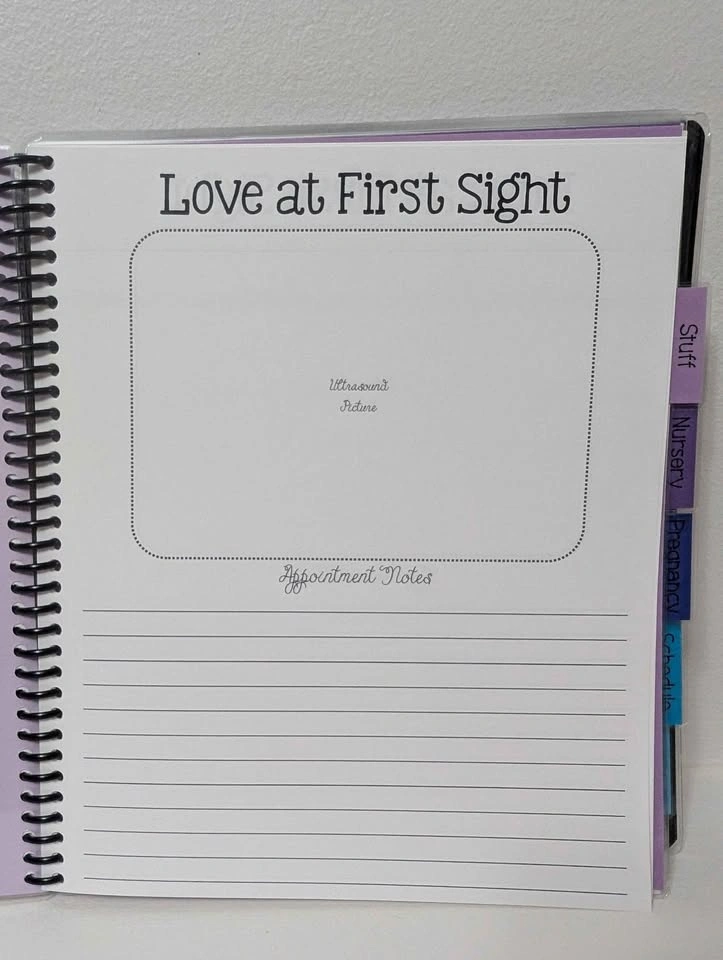 Love at First Sight
Ultrasound
Picture
Appointment Notes
Stuff
Nursery
Pregnancy
Schedule